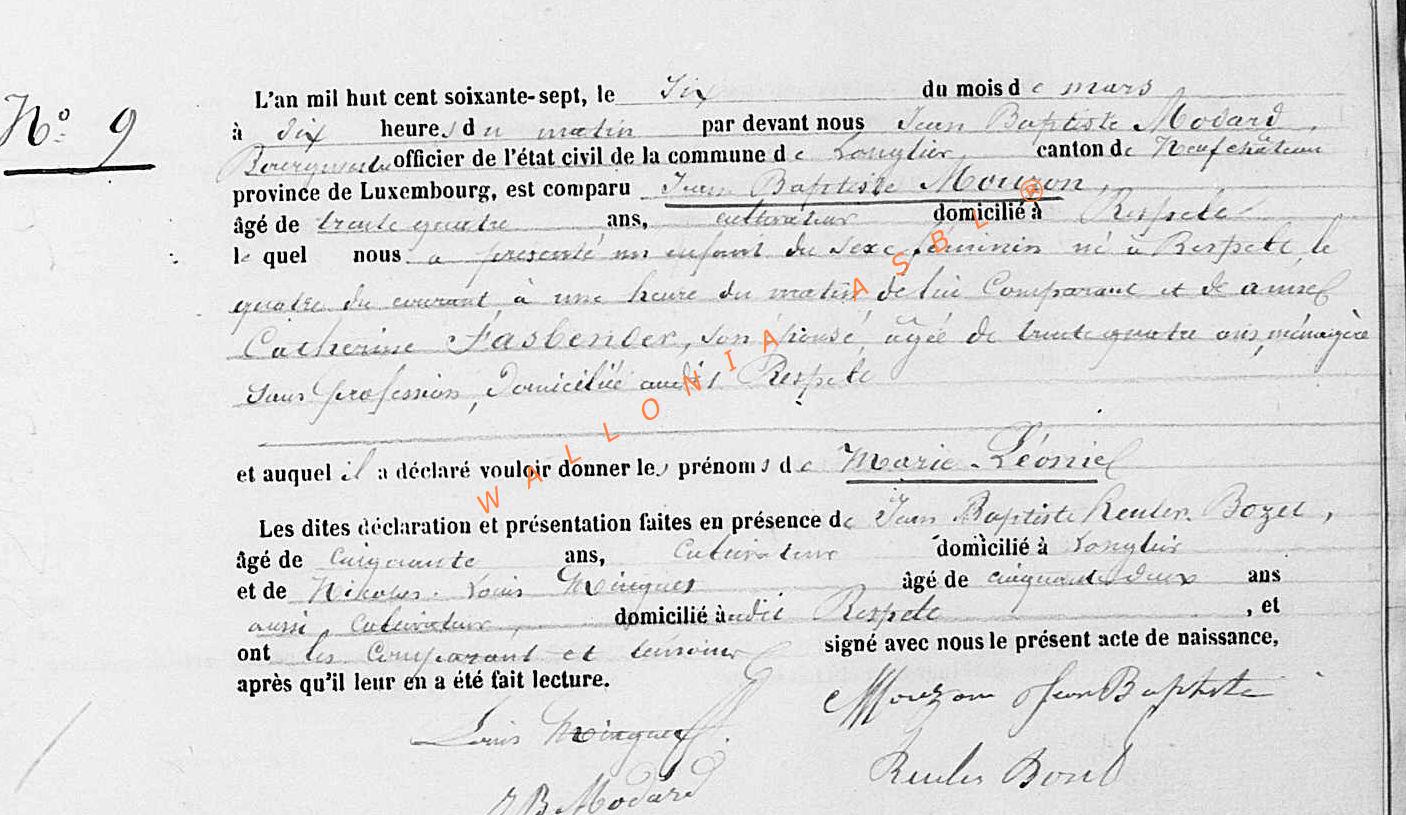 N.o 9
L'an mil huit cent soixante-sept, le Six du mois de mars
à Six heures du matin par devant nous Jean Baptiste Modard,
Bourgmestre officier de l'état civil de la commune de Longlier, canton de Neufchâteau
province de Luxembourg, est comparu Jean Baptiste Mouzon,
âgé de trente quatre ans, cultivateur domicilié à Respelt
lequel nous a présenté un enfant du sexe féminin né à Respelt, le
quatre du courant, à une heure du matin, de lui Comparant et de
Catherine Fasbender, son épouse, âgée de trente quatre ans, ménagère
sans profession, domiciliée audit Respelt
et auquel il a déclaré vouloir donner les prénoms de Marie-Léonie
Les dites déclaration et présentation faites en présence de Jean Baptiste Reuler Bozet,
âgé de cinquante ans, Cultivateur domicilié à Longlier
et de Nikolas Louis Mingues âgé de cinquante deux ans
aussi Cultivateur, domicilié audit Respelt, et
ont les Comparant et témoins signé avec nous le présent acte de naissance,
après qu'il leur en a été fait lecture.
Louis Mouzon Jean Baptiste
J B Modard Reuler
WALLONIA ASBL ®